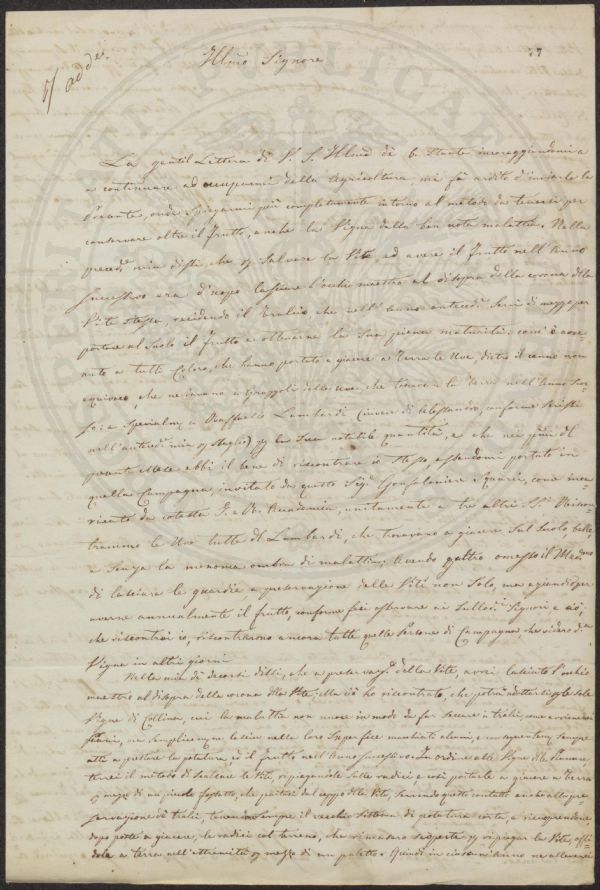 77
Illmo Signore
La gentil Lettera di V. S. Illma di 6 stante incoraggiandomi a
a continuare ad occuparmi della Agricoltura, mi fà ardito d'inviarle la
Presente, onde spiegarmi più completamente intorno al metodo da tenersi per
conservare oltre il Frutto, anche la Vigna dalla ben nota malattia. Nella
preced. mia dissi, che pr salvare la Vite, ed avere il Frutto nell'Anno
Successivo era d'uopo lasciare l'occhio maestro al disopra della corona della
Vite stessa, recidendo il Tralcio, che nell'anno anteced. servì di mezzo per
portare al Suolo il Frutto e ottenerne la Sua piena maturità: com'è
a tutti Coloro, che hanno portato a giacere a Terra le Uve, dietro il cenno non
equivoco, che ne davano i Grappoli delle uve, che toccavan la Terra nell'Anno
Specialm. a Raffaello Lambardi Cinese di Alessandro, conforme scrissi
nell'anteced. mia pr la Sua notabile quantità, e che nei primi del
ebbi il bene di riscontrare io stesso, essendomi portato in
quella Campagna, invitato da questo Sigr Gonfaloniere Squarci, come
da cotesta I. e R. Accademia, unitamente a tre altri SS.
le Uve tutte del Lambardi, che trovavano a giacere sul Suolo belle,
e Senza la menoma ombra di malattia; Avendo omesso il
di lasciare le guardie a preservazione delle Viti non Solo, ma per
averne annualmente il frutto, conforme feci osservare ai Sullod. Signori e ciò,
che riscontrai io, riscontrarono ancora tutte quelle Persone di Campagna, che videro d.a
Vigna in altri giorni
Nella mia dei decorsi dissi, che a preservaz. della Vite, avrei lasciato l'occhio
maestro al disopra della corona della Vite; Ma ciò ho riscontrato, che potrà le sole
Vigne di Collina, cui la malattia non nuoce in modo da far seccare i tralci, come avviene in
piani, ma semplicemente lascia nella loro Superfice macchiati alcuni, e conseguentem. sempre
atti a prestare la potatura, ed il frutto nell'Anno Successivo. In ordine alle Vigne delle Pianure,
terrei il metodo di scalzare le Viti, ripiegandole Sulle radici e così portarle a giacere a Terra
pr mezzo di un piccolo fossetto, che partirà dal ceppo della Vite, servendo questo contatto anche alla
servazione di tralci, tenendo sempre il vecchio Sistema di potatura corta, e ricoprendone
dopo poste a giacere, le radici col terreno, che rimasero scoperte pr ripiegar la Vite,
dola a terra nell'estremità pr mezzo di un paletto. Quindi in ciascun Anno ne alleverei